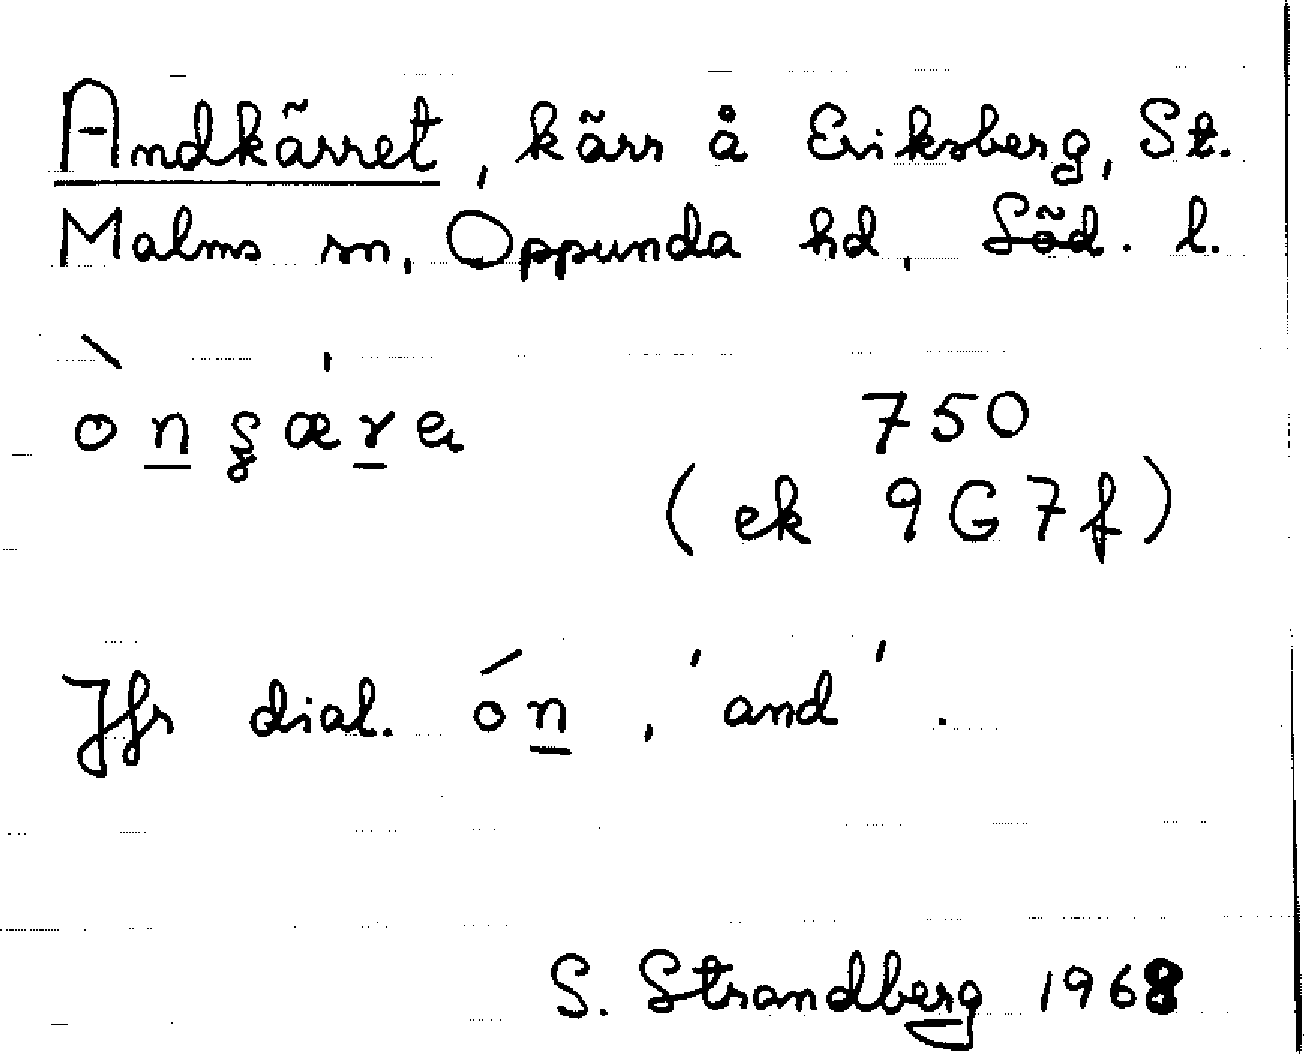 Andkärret, kärr å Eriksberg, St.
Malms sn, Oppunda hd, Söd. l.
750
(ek 9G7f)
Jfr dial. ón, 'and'.
S. Strandberg 1968